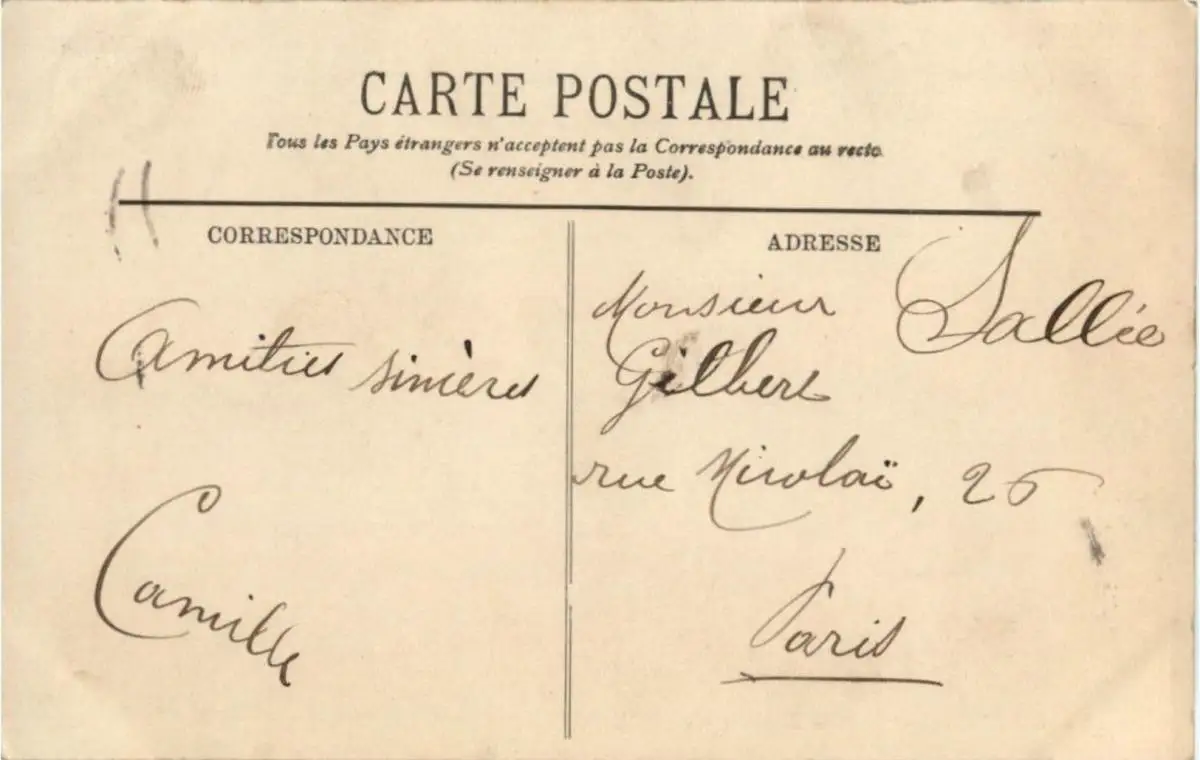 CARTE POSTALE
Tous les Pays étrangers n'acceptent pas la Correspondance au recto
(Se renseigner à la Poste).
CORRESPONDANCE
Amitiés sincères
Camille
ADRESSE
Monsieur Sallée
Gilbert
rue Nicolaï, 26
Paris